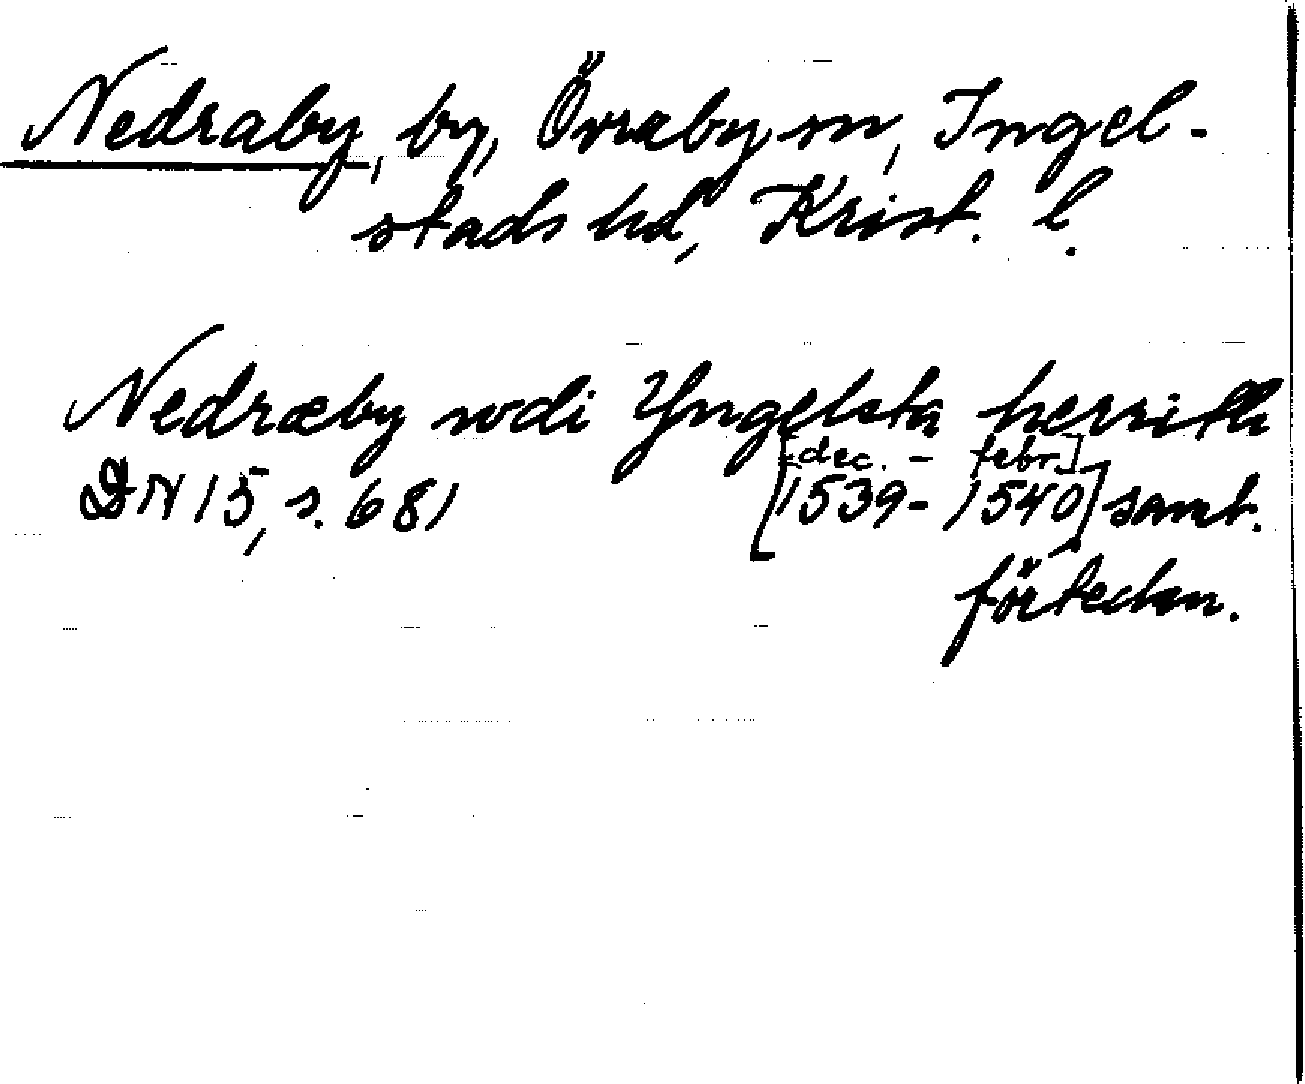 Nedraby, by, Övraby sn, Ingel-
stads hd, Krist. l.
Nedræby wdi Yngelsta herrith
[dec. - febr.]
DN 15, s. 681 [1539-1540] samt.
förteckn.